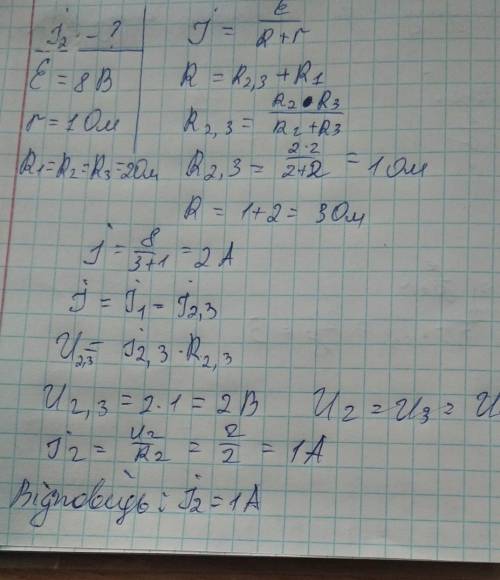 I₂ - ?
ℰ = 8 В
r = 1 Ом
R₁=R₂=R₃=2Ом
I = ℰ/(R+r)
R = R₂,₃ + R₁
R₂,₃ = (R₂•R₃)/(R₂+R₃)
R₂,₃ = (2·2)/(2+2) = 1 Ом
R = 1+2 = 3 Ом
I = 8/(3+1) = 2 А
I = I₁ = I₂,₃
U₂,₃ = I₂,₃ · R₂,₃
U₂,₃ = 2·1 = 2 В U₂ = U₃ = U
I₂ = U₂/R₂ = 2/2 = 1А
Відповідь: I₂ = 1 А